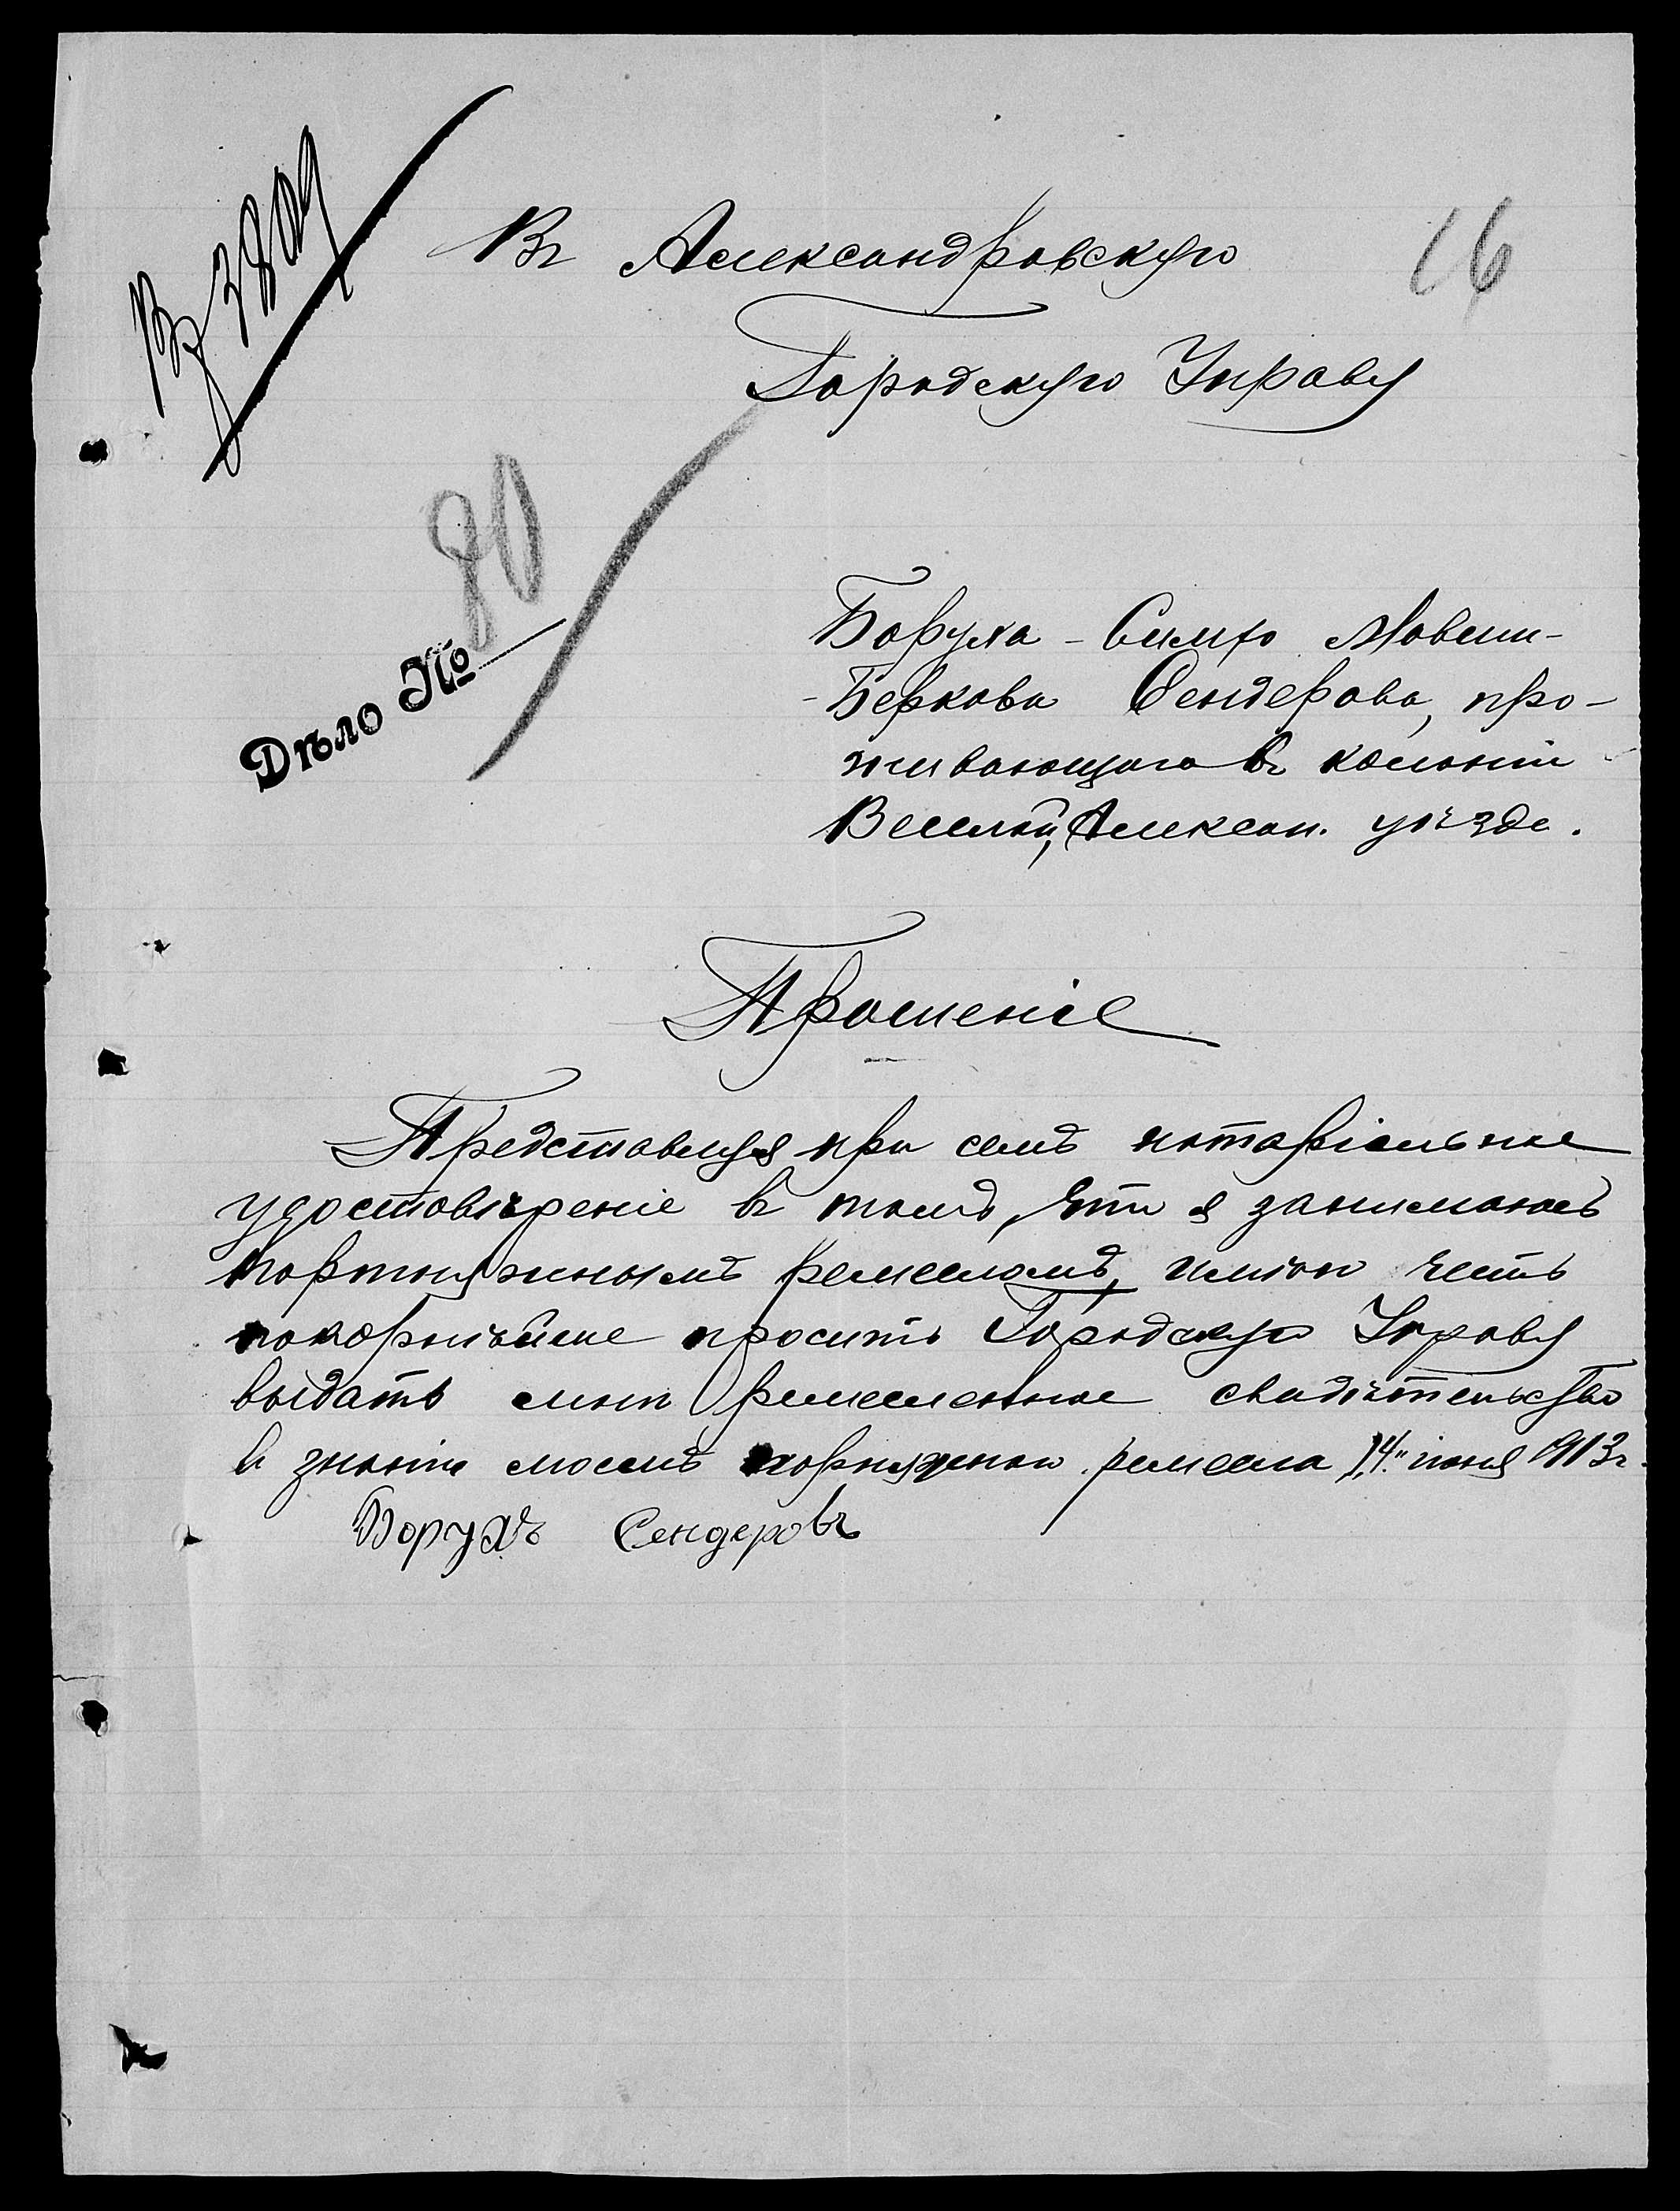 Въ Александровскую
16
Городскую Управу
80
Дѣло №
Боруха-Симхо Мовши-
-Беркова Сендерова, про-
живающаго въ колоніи
Веселой, Алексан. уѣзда.
Прошеніе
Представляя при семъ нотаріальное
удостовѣреніе въ томъ, что я занимаюсь
портняжнымъ ремесломъ, имѣю честь
покорнѣйше просить Городскую Управу
выдать мнѣ ремесленное свидѣтельство
в знаніи моемъ портняжного ремесла „14" іюня 1913 г.
Борухъ Сендеровъ